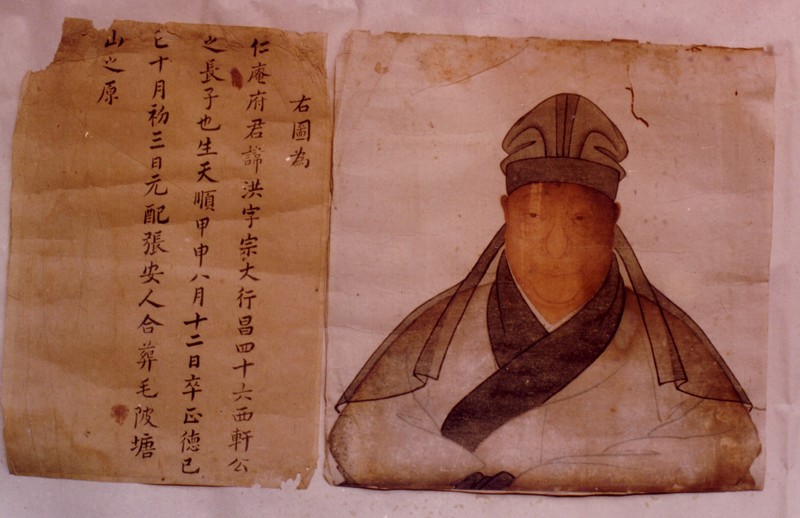 右圖為
仁庵府君諱洪字宗大行昌四十六西軒公
之長子也生天順甲申八月十二日卒正德己
巳十月初三日元配張安人合葬毛陂塘
山之原